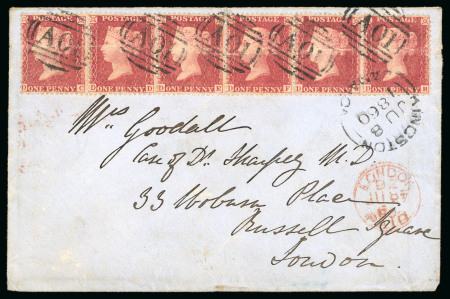 POSTAGE POSTAGE POSTAGE POSTAGE POSTAGE POSTAGE
A01 A01 A01 A01 A01 A01
ONE PENNY ONE PENNY ONE PENNY ONE PENNY ONE PENNY ONE PENNY
KINGSTON
JU 8
1860
Mrs Goodall
Care of Dr Sharpey M.D
33 Woburn Place
Russell Square
London.
LONDON
PAID